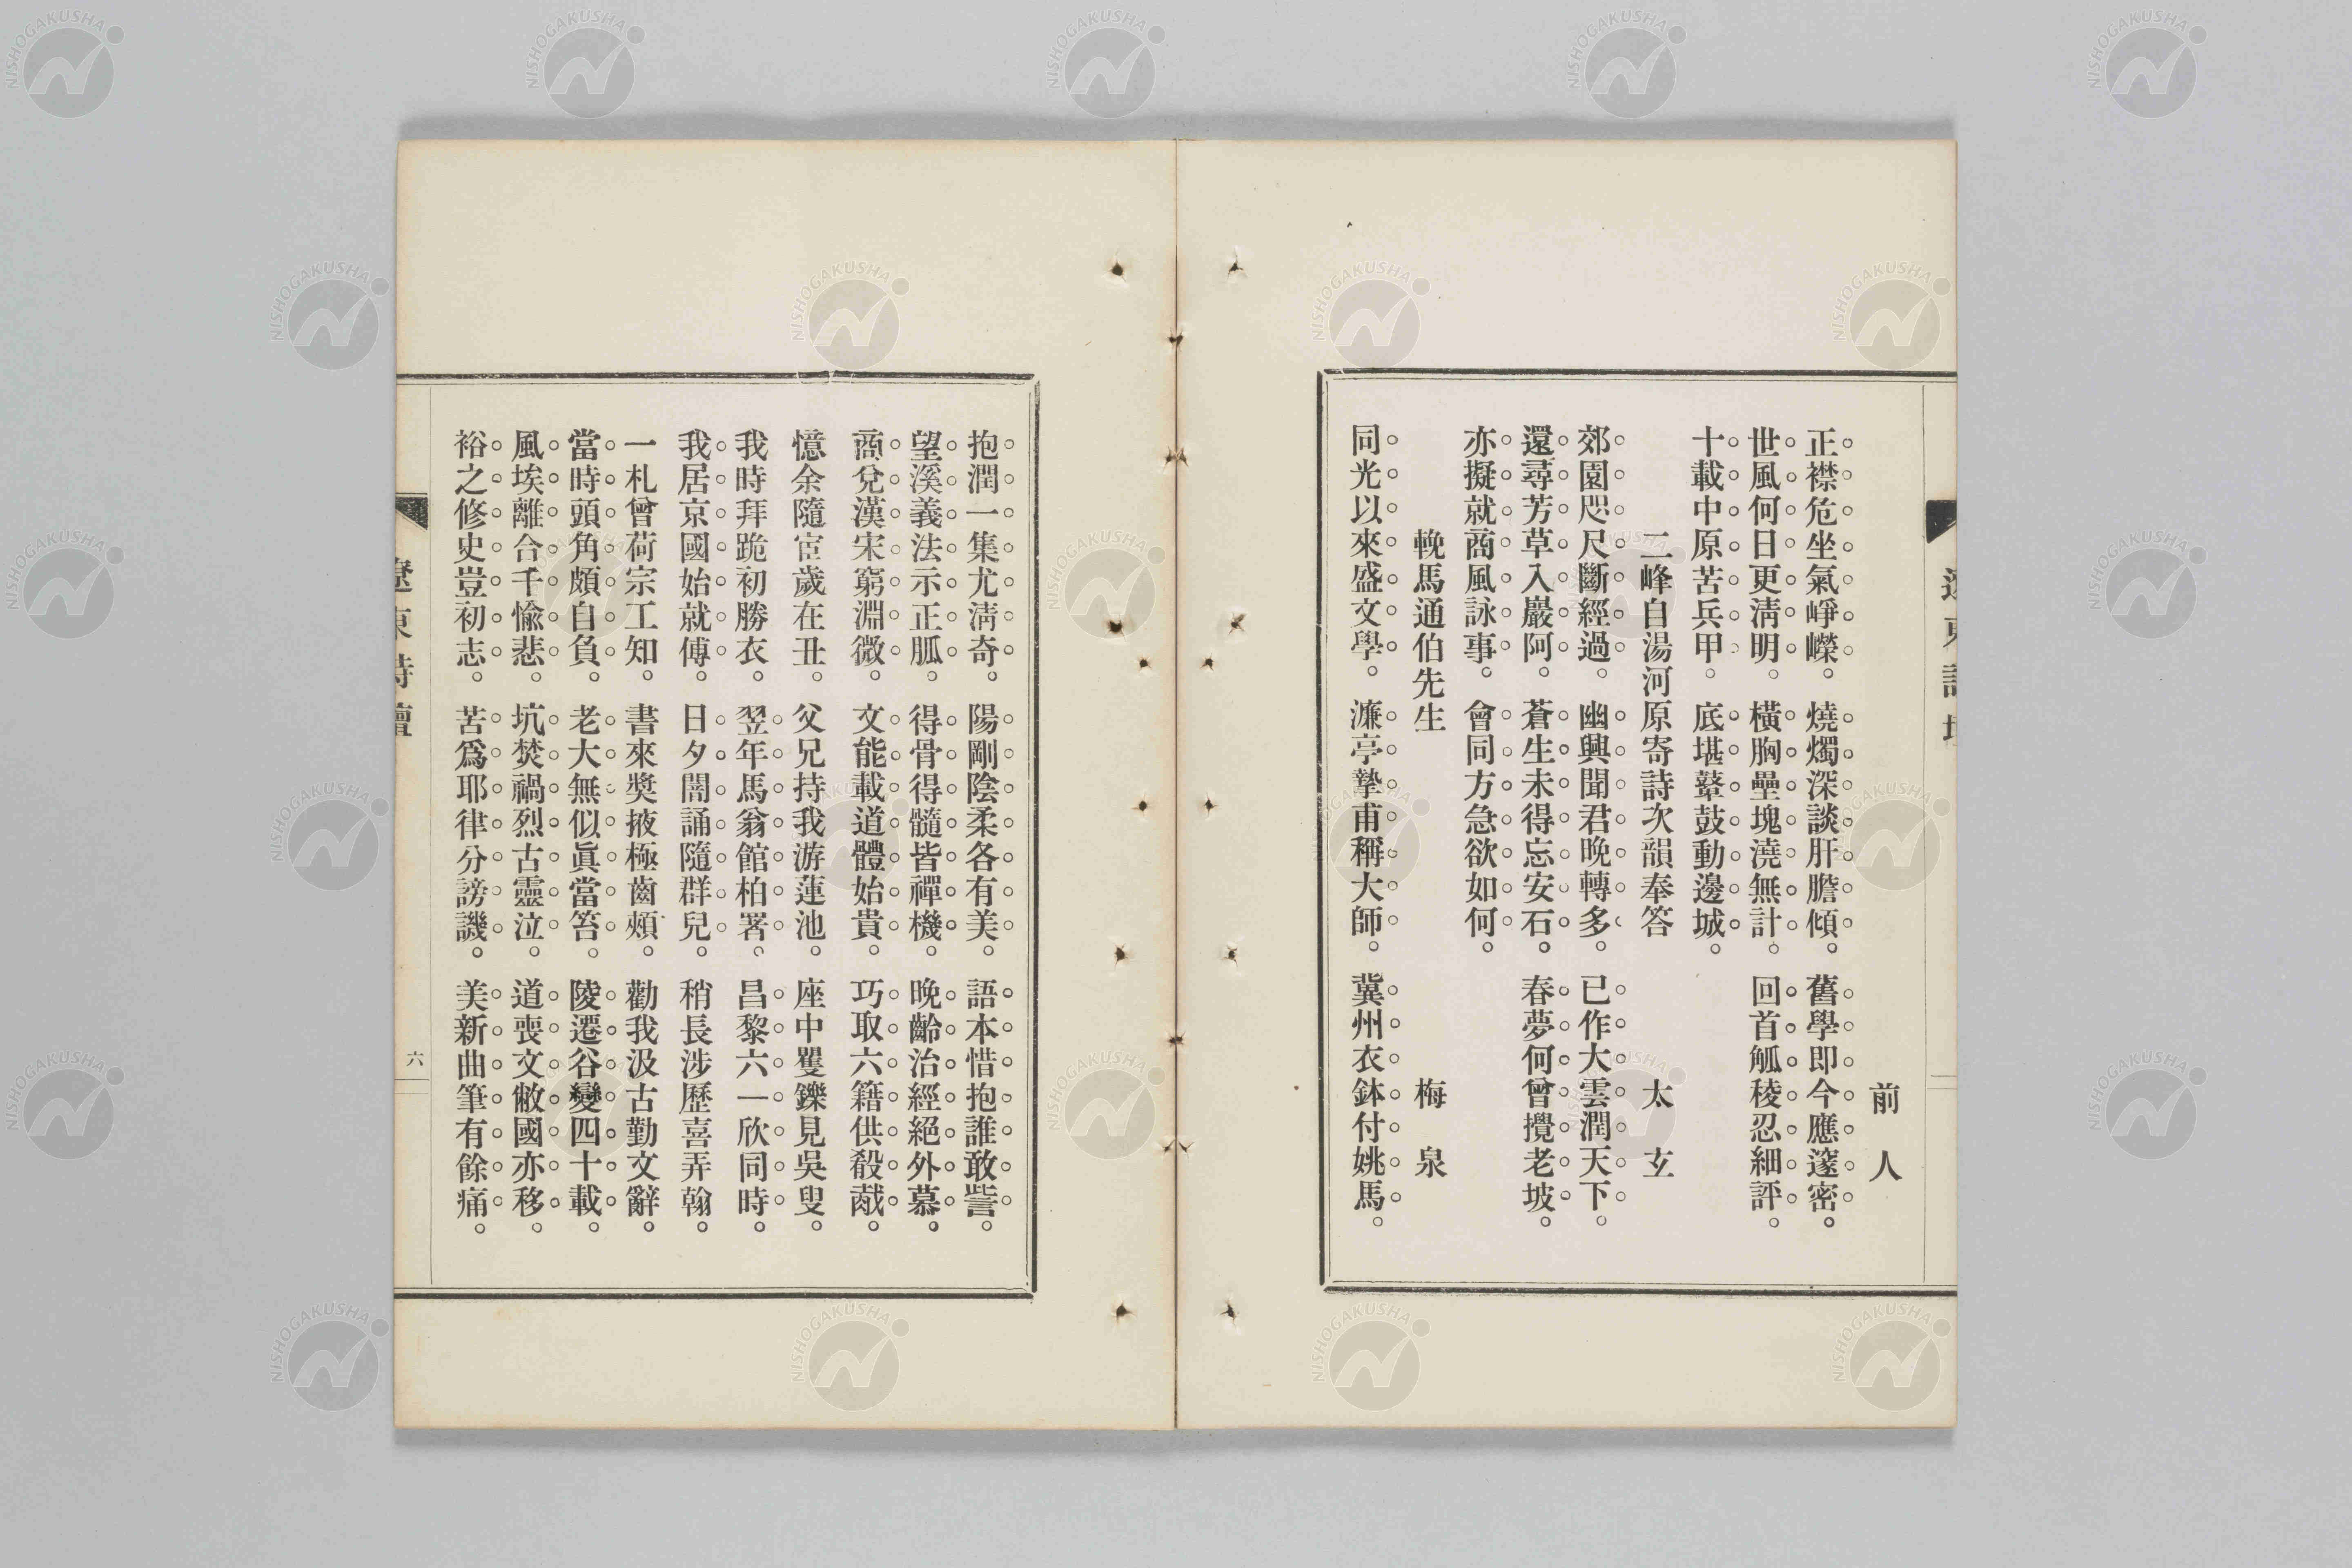 前人
正襟危坐氣崢嶸。燒燭深談肝膽傾。舊學即今應邃密。
世風何日更淸明。橫胸壘塊澆無計。回首觚稜忍細評。
十載中原苦兵甲。底堪鼙鼓動邊城。
二峰自湯河原寄詩次韻奉答 太玄
郊園咫尺斷經過。幽興聞君晚轉多。已作大雲潤天下。
還尋芳草入巖阿。蒼生未得忘安石。春夢何曾攪老坡。
亦擬就商風詠事。會同方急欲如何。
輓馬通伯先生 梅泉
同光以來盛文學。濂亭摯甫稱大師。冀州衣鉢付姚馬。
抱潤一集尤淸奇。陽剛陰柔各有美。語本惜抱誰敢訾。
望溪義法示正脈。得骨得髓皆禪機。晚齡治經絕外慕。
商兌漢宋窮淵微。文能載道體始貴。巧取六籍供殽胾。
憶余隨宦歲在丑。父兄持我游蓮池。座中矍鑠見吳叟。
我時拜跪初勝衣。翌年馬翁館柏署。昌黎六一欣同時。
我居京國始就傅。日夕闇誦隨群兒。稍長涉歷喜弄翰。
一札曾荷宗工知。書來獎掖極齒頰。勸我汲古勤文辭。
當時頭角頗自負。老大無似眞當笞。陵遷谷變四十載。
風埃離合千愉悲。坑焚禍烈古靈泣。道喪文敝國亦移。
裕之修史豈初志。苦爲耶律分謗譏。美新曲筆有餘痛。
遼東詩壇
六
NISHOGAKUSHA